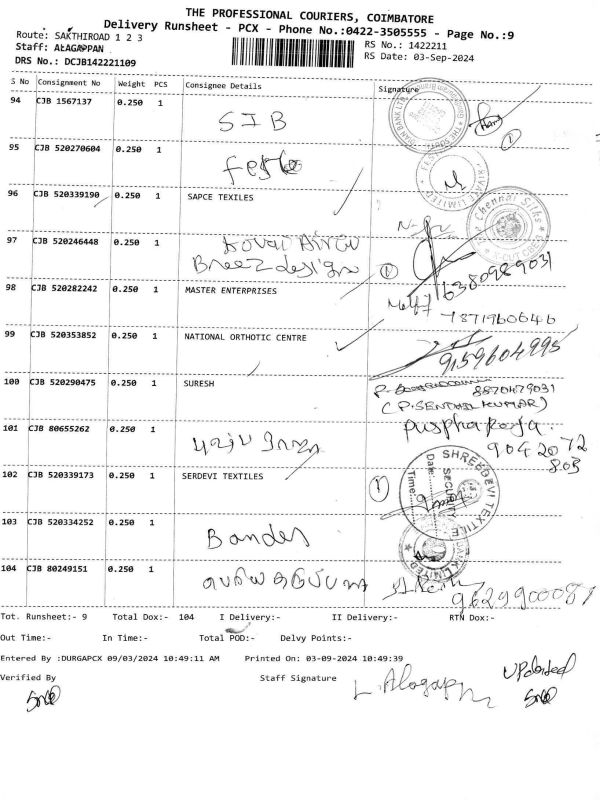 THE PROFESSIONAL COURIERS, COIMBATORE
Delivery Runsheet - PCX - Phone No.:0422-3505555 - Page No.:9
Route: SAKTHIROAD 1 2 3
RS No.: 1422211
Staff: ALAGAPPAN
RS Date: 03-Sep-2024
DRS No.: DCJB142221109
S No Consignment No Weight PCS Consignee Details Signature
94 CJB 1567137 0.250 1 SIB
95 CJB 520270604 0.250 1
96 CJB 520339190 0.250 1 SAPCE TEXILES
Chennai Silks
97 CJB 520246448 0.250 1
Breez design
6380989031
98 CJB 520282242 0.250 1 MASTER ENTERPRISES
7871960646
99 CJB 520353852 0.250 1 NATIONAL ORTHOTIC CENTRE
9159604995
100 CJB 520290475 0.250 1 SURESH
8870479031
(P.SENTHIL KUMAR)
101 CJB 80655262 0.250 1 புஷ்ப ராஜா Puspha Raja
9042072
803
102 CJB 520339173 0.250 1 SERDEVI TEXTILES
SHREEDEVI TEXTILE
SECURITY
Date:
Time:
103 CJB 520334252 0.250 1
BANK LIMITED
104 CJB 80249151 0.250 1
9629900087
Tot. Runsheet:- 9 Total Dox:- 104 I Delivery:- II Delivery:- RTN Dox:-
Out Time:- In Time:- Total POD:- Delvy Points:-
Entered By :DURGAPCX 09/03/2024 10:49:11 AM Printed On: 03-09-2024 10:49:39
Verified By Staff Signature
L. Alagapp
Updated